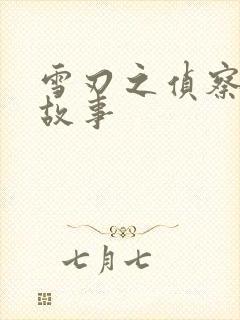 雪刃之偵察
故事
七月七